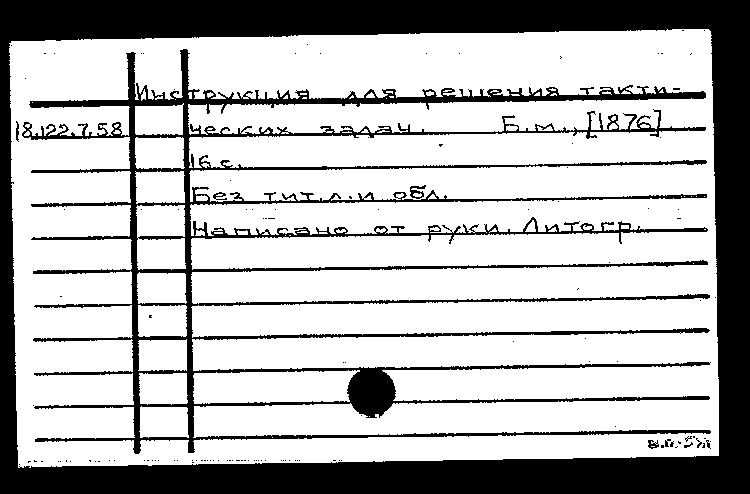 Инструкция для решения такти-
18.122.7.58 ческих задач. Б.м., [1876]
16 с.
Без тит.л. и обл.
Написано от руки. Литогр.